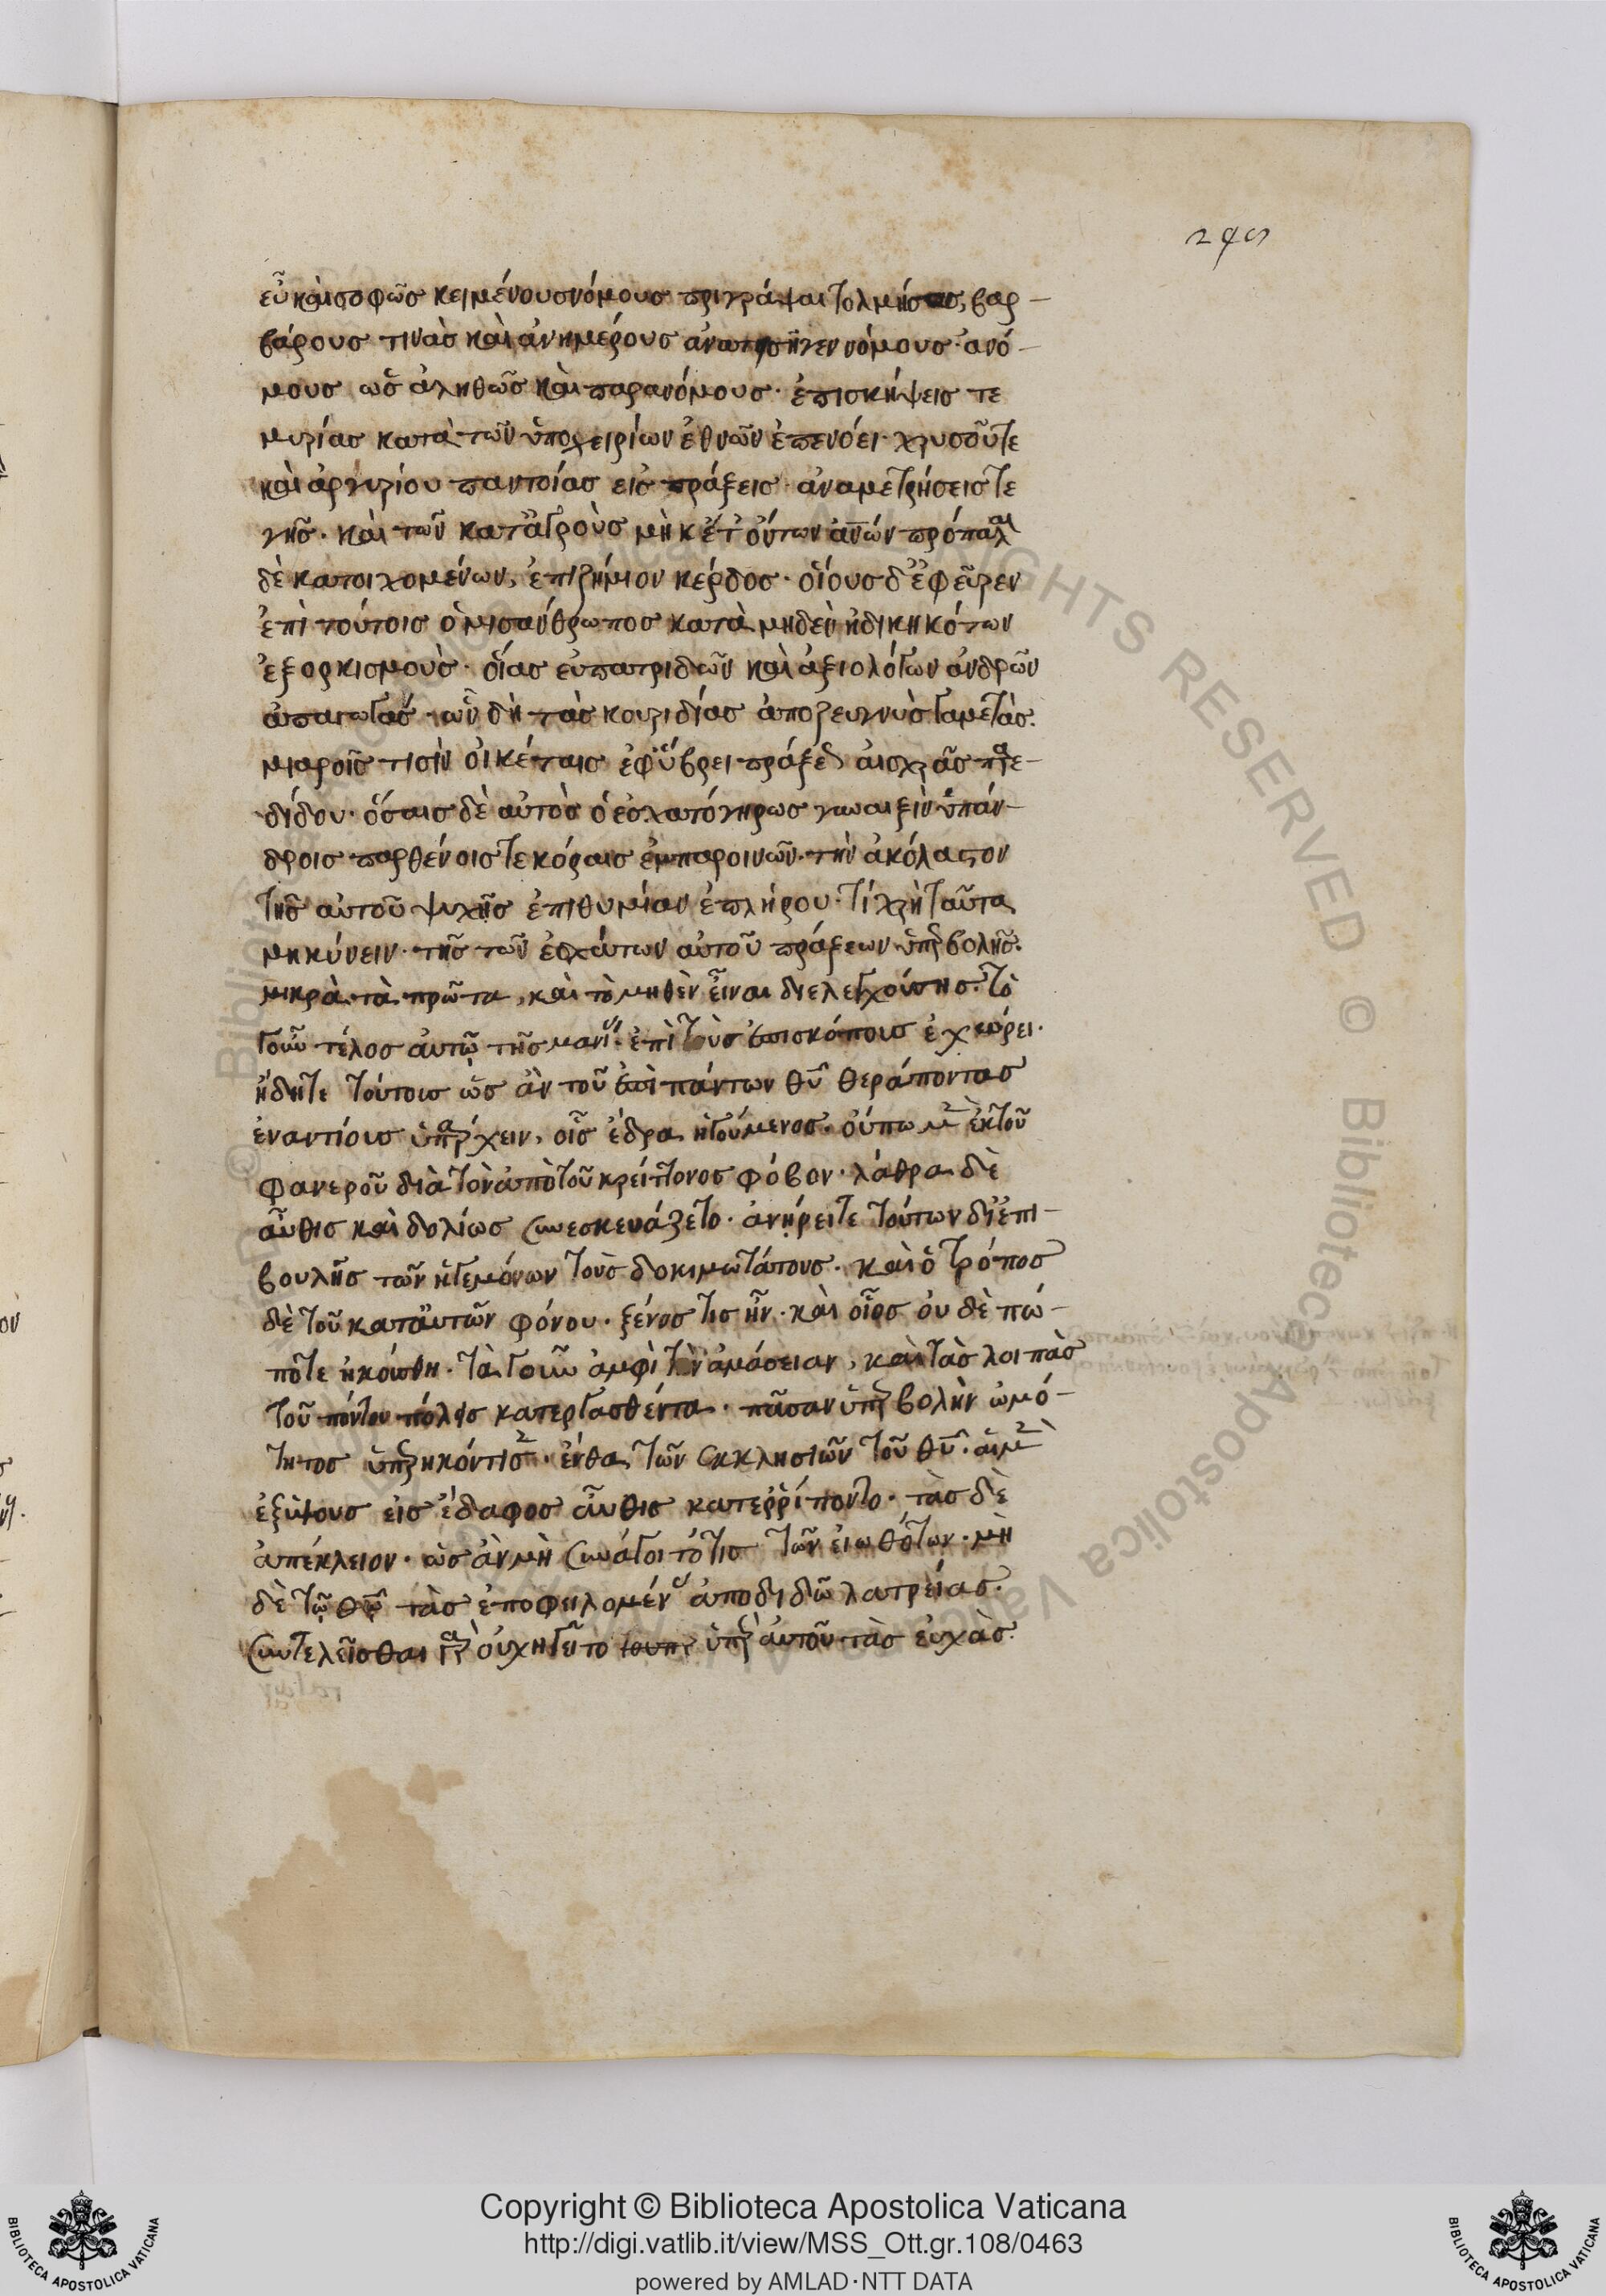 296
εὖ καὶ σοφῶς κειμένους νόμους περιγράψαι τολμήσας, βαρ-
βάρους τινὰς καὶ ἀνημέρους ἀντεισῆγεν νόμους· ἀνό-
μους ὡς ἀληθῶς καὶ παρανόμους· ἐπισκήψεις τε
μυρίας κατὰ τῶν ὑποχειρίων ἐθνῶν ἐπενόει· χρυσοῦ τε
καὶ ἀργυρίου παντοίας εἰσπράξεις· ἀναμετρήσεις τε
γῆς· καὶ τῶν κατ' ἀγροὺς μὴκέτ' ὄντων ἀν̅ων πρόπαλαι
δὲ κατοιχομένων, ἐπιζήμιον κέρδος· οἵους δ' ἐφεῦρεν
ἐπὶ τούτοις ὁ μισάνθρωπος κατὰ μηδὲν ἠδικηκότων
ἐξορκισμοὺς· οἵας εὐπατριδῶν καὶ ἀξιολόγων ἀνδρῶν
ἀπαγωγάς· ὧν δὴ τὰς κουριδίας ἀποζευγνὺς γαμετὰς·
μιαροῖς τισὶν οἰκέταις ἐφ' ὕβρει πράξεως αἰσχρᾶς παρε-
δίδου· ὅσαις δὲ αὐτὸς ὁ ἐσχατόγηρως γυναιξὶν ὑπάν-
δροις παρθένοις τε κόραις ἐμπαροινῶν· τὴν ἀκόλαστον
τῆς αὐτοῦ ψυχῆς ἐπιθυμίαν ἐπλήρου· τί χρὴ ταῦτα
μηκύνειν· τῆς τῶν ἐσχάτων αὐτοῦ πράξεων ὑπερβολῆς·
μικρὰ τὰ πρῶτα, καὶ τὸ μηθὲν εἶναι διελεγχούσης· τὸ
γοῦν τέλος αὐτῷ τῆς μανίας· ἐπὶ τοὺς ἐπισκόπους ἐχώρει·
ἤδη τε τούτους ὡς ἂν τοῦ ἐπὶ πάντων θυ̅ θεράποντας
ἐναντίους ὑπάρχειν, οἷς ἔδρα ἡγούμενος· οὔπω μὲν ἐκ τοῦ
φανεροῦ διὰ τὸν ἀπὸ τοῦ κρείττονος φόβον· λάθρα δὲ
αὖθις καὶ δολίως συνεσκευάζετο· ἀνῄρει τε τούτων δι' ἐπι-
βουλῆς τῶν ἡγεμόνων τοὺς δοκιμωτάτους· καὶ ὁ τρόπος
δὲ τοῦ κατ' αὐτῶν φόνου· ξένος τις ἦν· καὶ οἷος οὐδὲ πώ-
ποτε ἠκούσθη· τὰ γοῦν ἀμφὶ τὴν ἀμάσειαν, καὶ τὰς λοιπὰς
τοῦ πόντου πόλεις κατεργασθέντα· πᾶσαν ὑπερβολὴν ὠμό-
τητος ὑπερηκόντισεν· ἔνθα τῶν ἐκκλησιῶν τοῦ θυ̅· αἱ μὲν
ἐξ ὕψους εἰς ἔδαφος αὖθις κατερρίπτοντο· τὰς δὲ
ἀπέκλειον· ὡς ἂν μὴ συνάγοιτό τις τῶν εἰωθότων· μὴ
δὲ τῷ θω̅ τὰς ἐποφειλομένας ἀποδιδῶ λατρείας·
συντελεῖσθαι γὰρ οὐχ ἡγεῖτο ὑπὲρ αὐτοῦ τὰς εὐχὰς·
Copyright © Biblioteca Apostolica Vaticana
http://digi.vatlib.it/view/MSS_Ott.gr.108/0463
powered by AMLAD·NTT DATA
BIBLIOTECA APOSTOLICA VATICANA
BIBLIOTECA APOSTOLICA VATICANA